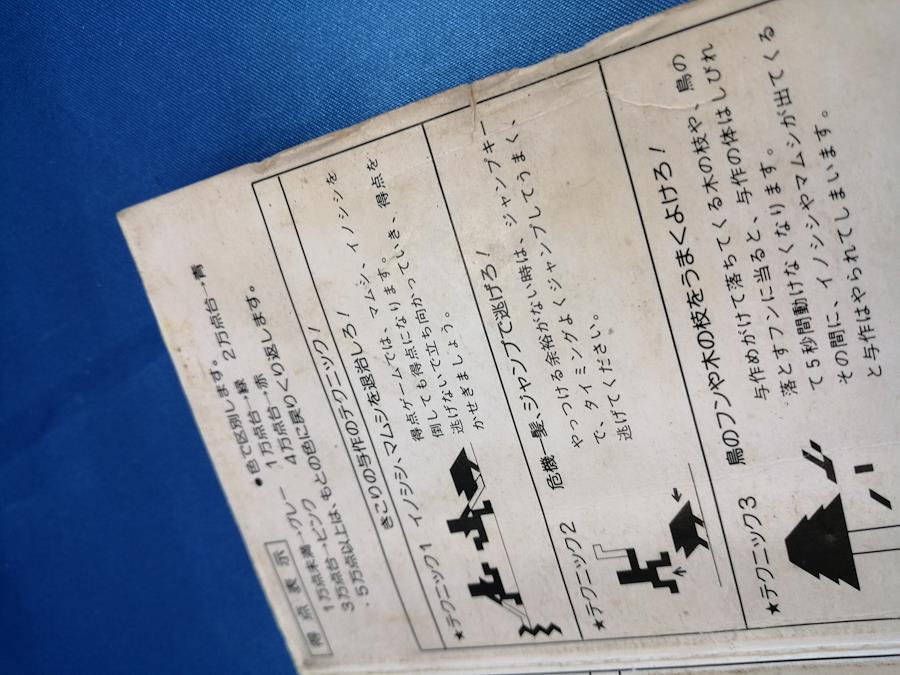 得点表示
●色で区別します。
1万点未満→グレー 1万点台→緑 2万点台→青
3万点台→ピンク 4万点台→赤
・5万点以上は、もとの色に戻りくり返します。
きこりの与作のテクニック!
★テクニック1 イノシシ、マムシを退治しろ!
得点ゲームでは、マムシ、イノシシを
倒しても得点になります。
逃げないで立ち向かっていき、得点を
かせぎましょう。
★テクニック2 危機一髪、ジャンプで逃げろ!
やっつける余裕がない時は、ジャンプキー
で、タイミングよくジャンプしてうまく、
逃げてください。
★テクニック3 鳥のフンや木の枝をうまくよけろ!
与作めがけて落ちてくる木の枝や、鳥の
落とすフンに当ると、与作の体はしびれ
て5秒間動けなくなります。
その間に、イノシシやマムシが出てくる
と与作はやられてしまいます。